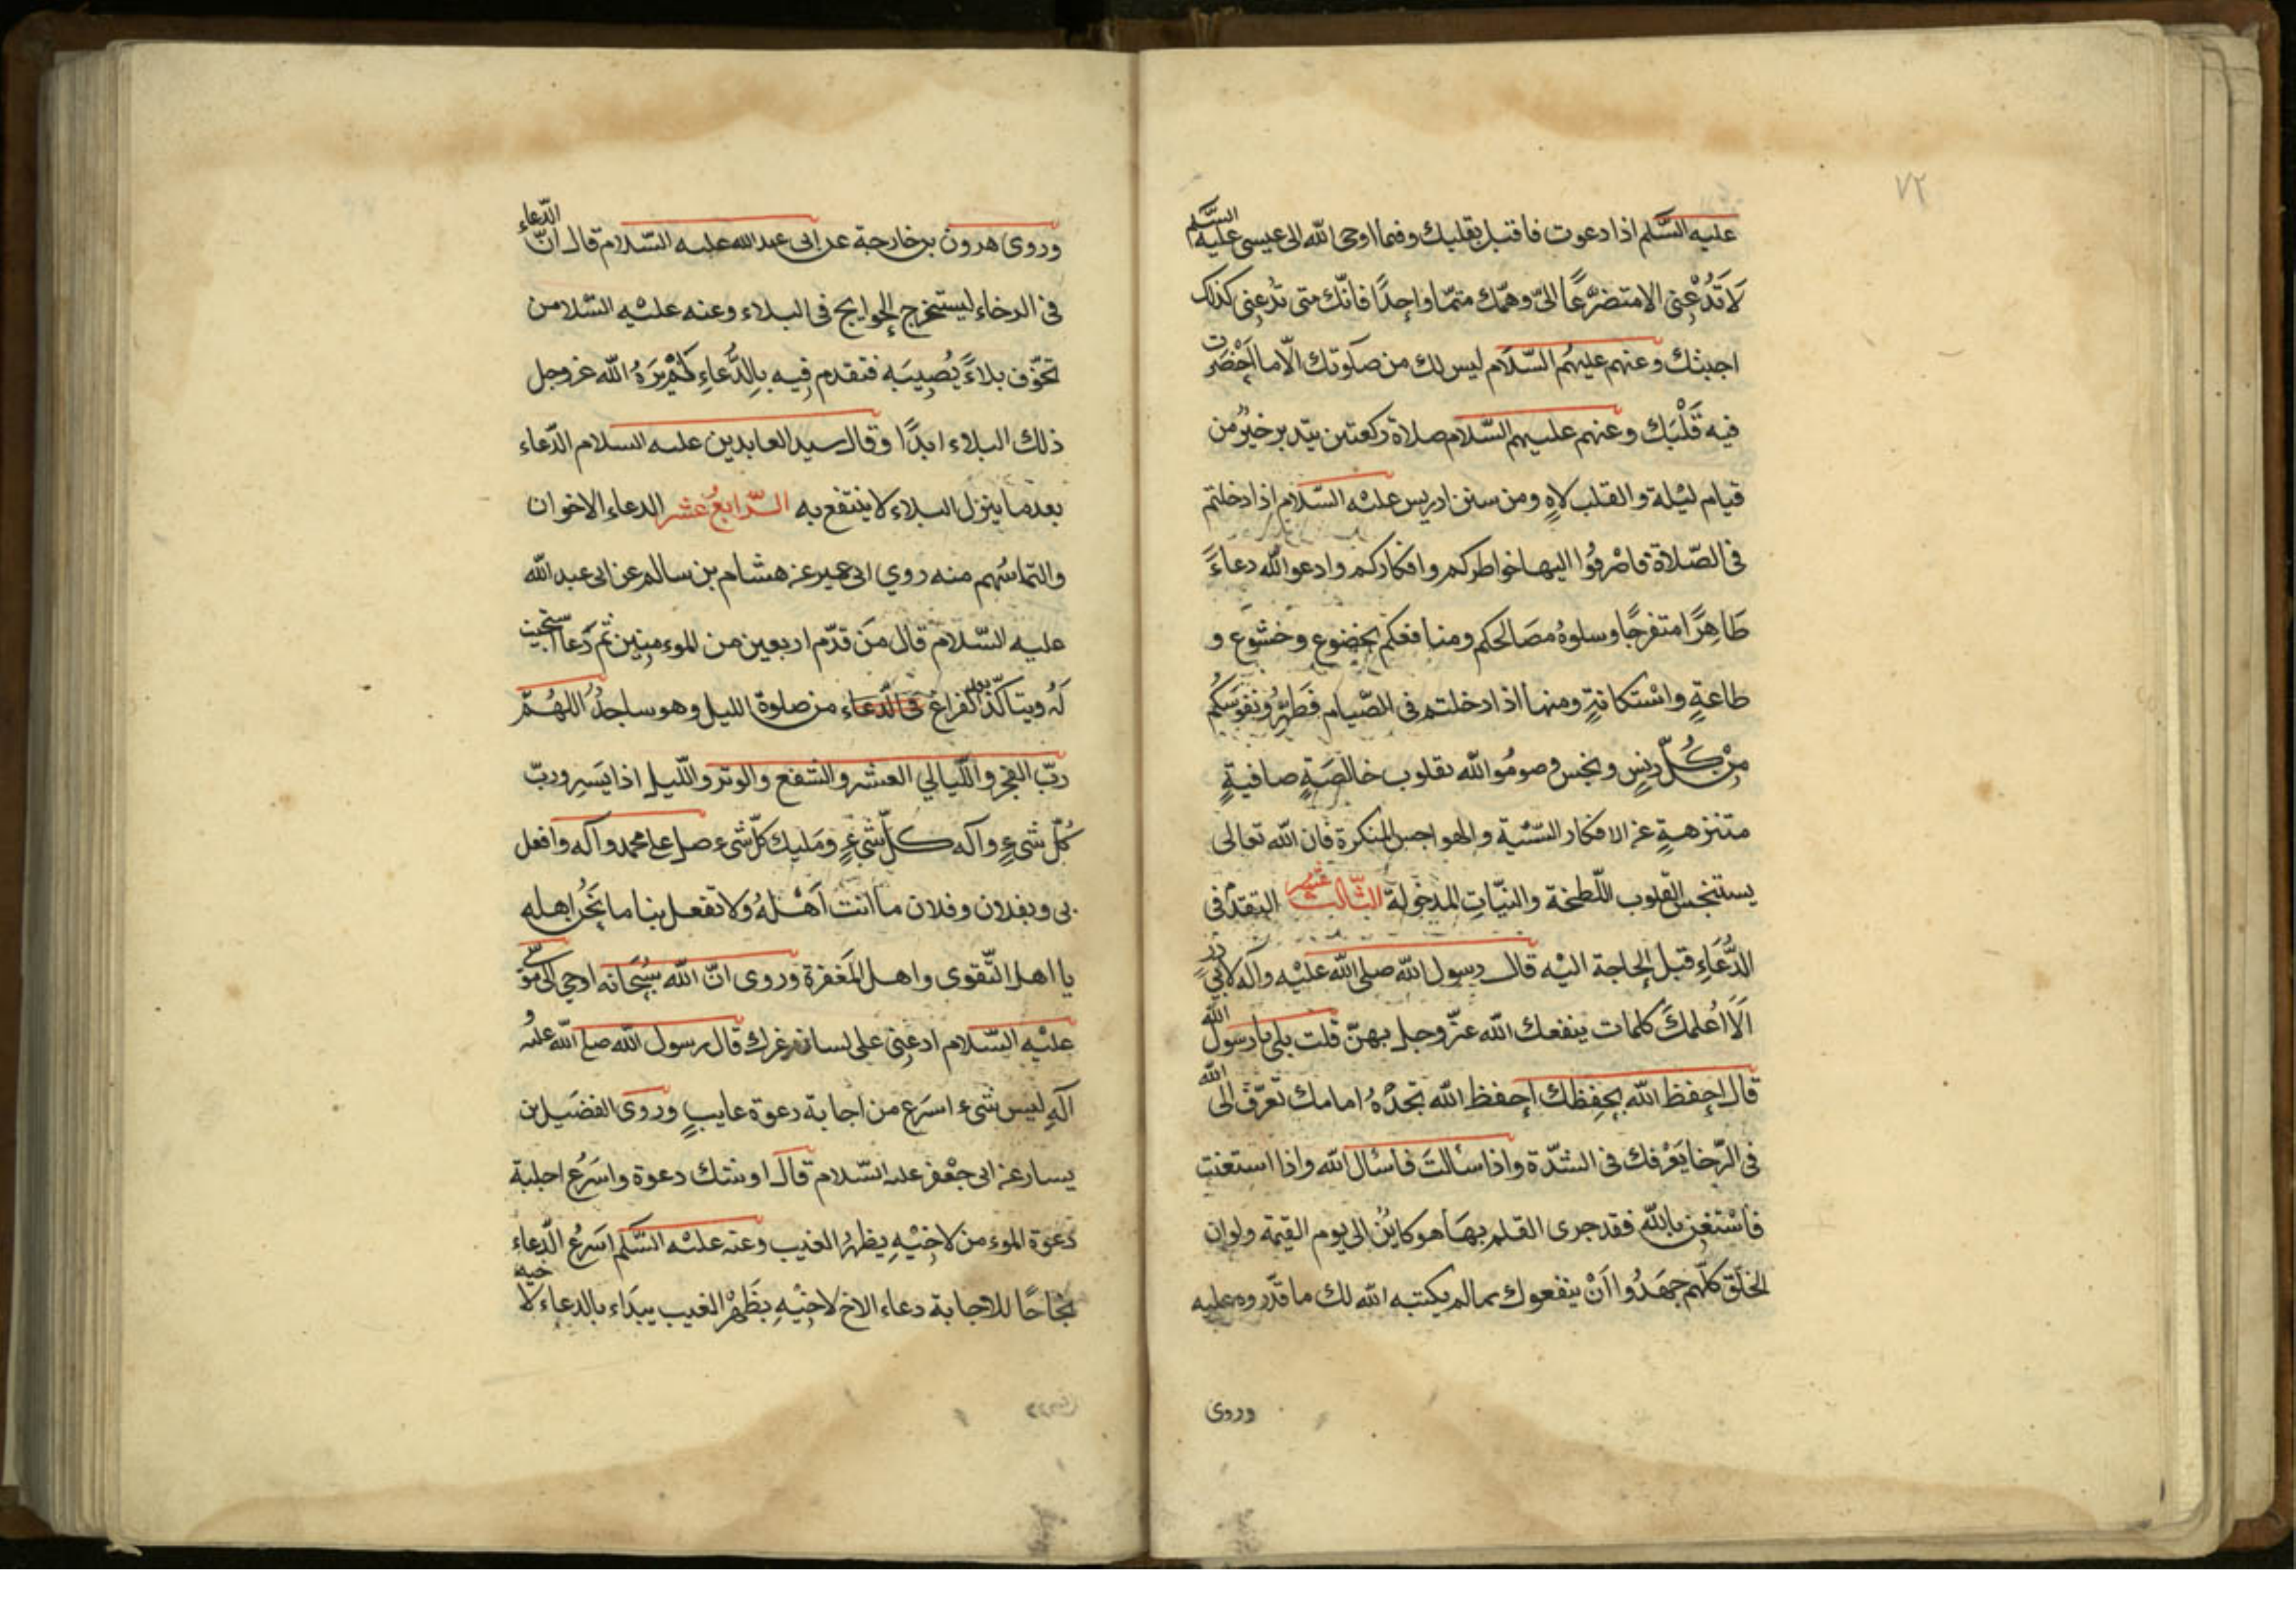 ٧٢
عليه السَّلم اذا دعوت فاقبل بقلبك وفيما اوحى الله الى عيسى عليه السَّلم
لَا تَدْعُنِى الا متضرِّعًا الىّ وهمّك متمّا واحِدًا فانّك متى تدعنى كذلك
اجبتك وعنهم عليهم السّلام ليس لك من صلوتك الّا ما احْضَرت
فيه قَلْبَك وعنهم عليهم السّلام صلاة ركعتين بتدبر خيرٌ من
قيام ليلة والقلب لاهٍ ومن سنن ادريس عليْه السّلام اذا دخلتم
فى الصّلاة فاصْرفُوا اليها خواطركم وافكاركم وادعو الله دعاءً
طَاهِرًا متفرجًا وسلوهُ مصَالحكم ومنافعكم بخضوعٍ وخشوعٍ و
طاعةٍ واسْتكانةٍ ومنها اذا دخلتم فى الصّيام فَطَهِّرُو نفوسَكُم
مِنْ كُلِّ دنسٍ ونجس وصومُو الله بقلوب خالصَةٍ صافيةٍ
متنزهةٍ عن الافكار السّيّئة والهواجس المنكرة فان الله تعالى
يستنجس القلوب اللّطخة والنيّاتِ المدخولة الثّالث عشر التقدّم فى
الدُّعَاءِ قبل الحاجة اليْه قال رسول الله صلى الله عليْه وآله لابي ذرٍ
اَلَا اُعلمكَ كلمات ينفعك الله عزّ وجل بهنّ قلت بلى يا رسول الله
قال احفظ الله يحفِظك احفظ الله تجدْهُ امامك تعرّف الى الله
فى الرّخا يَعْرفك فى الشدّة واذا سألتَ فاسئل الله واذا استعنت
فاسْتعِن بالله فقد جرى القلم بهَا هو كاينٌ الى يوم القيمة ولو ان
الخلق كلّهم جهَدُوا اَنْ ينفعوك بما لم يكتبه الله لك ما قدَروه عليه
وروى
وروى هرون بن خارجة عن ابى عبد الله عليه السّلام قال انّ الدّعاء
فى الرخاء ليستخرج الحوايج فى البلاء وعنه عليْه السّلام من
تخوّف بلاءً يُصِيبَه فتقدم فِيه بِالدُّعَاءِ لَمْ يَرَهُ الله عز وجل
ذلك البلاء ابدًا وقال سيد العابدين عليه السلام الدّعاء
بعد ما ينزل البلاء لا ينتفع به الرّابعُ عشر الدعاء الاخوان
والتماسُهم منه روي ابى عمير عن هشام بن سالم عن ابى عبد الله
عليه السّلام قال مَن قدّم اربعين من المومنين ثم دَعا استجيب
لَهُ ويتاكّد بعد الفراغ فى الدعاء من صلوة الليل وهو ساجدٌ اللهُمّ
ربّ الفجر واللّيالي العشر والشفع والوتر واللّيل اذا يَسِر وربّ
كُلّ شىءٍ وآله كلّ شىءٍ ومَليك كلّ شىء صل على محمد وآله وافعل
بى وبفلان وفلان ما انت اَهْلهُ ولا تفعل بنا ما نَحْن اهله
يا اهل التّقوى واهل المَغفرة وروى انّ الله سُبْحَانه اوحى الى موسى
عليْه السّلام ادعنِى على لسان غيرك قال رسول الله صل الله عليه و
آلهِ ليس شىء اسرَع من اجابة دعوة غايبٍ وروى الفضَيل بن
يسار عن ابى جعْفر عليه السّلام قال اوشك دعوة واسَرعُ اجابة
دَعوَة الموءمن لاخيْهِ بظهر الغيب وعنه عليْه السَّلم اسَرعُ الدّعاء
نجاحًا للاجابة دعاء الاخ لاخيْهِ بظَهْر الغيب يبدَاء بالدعاء لاخيه